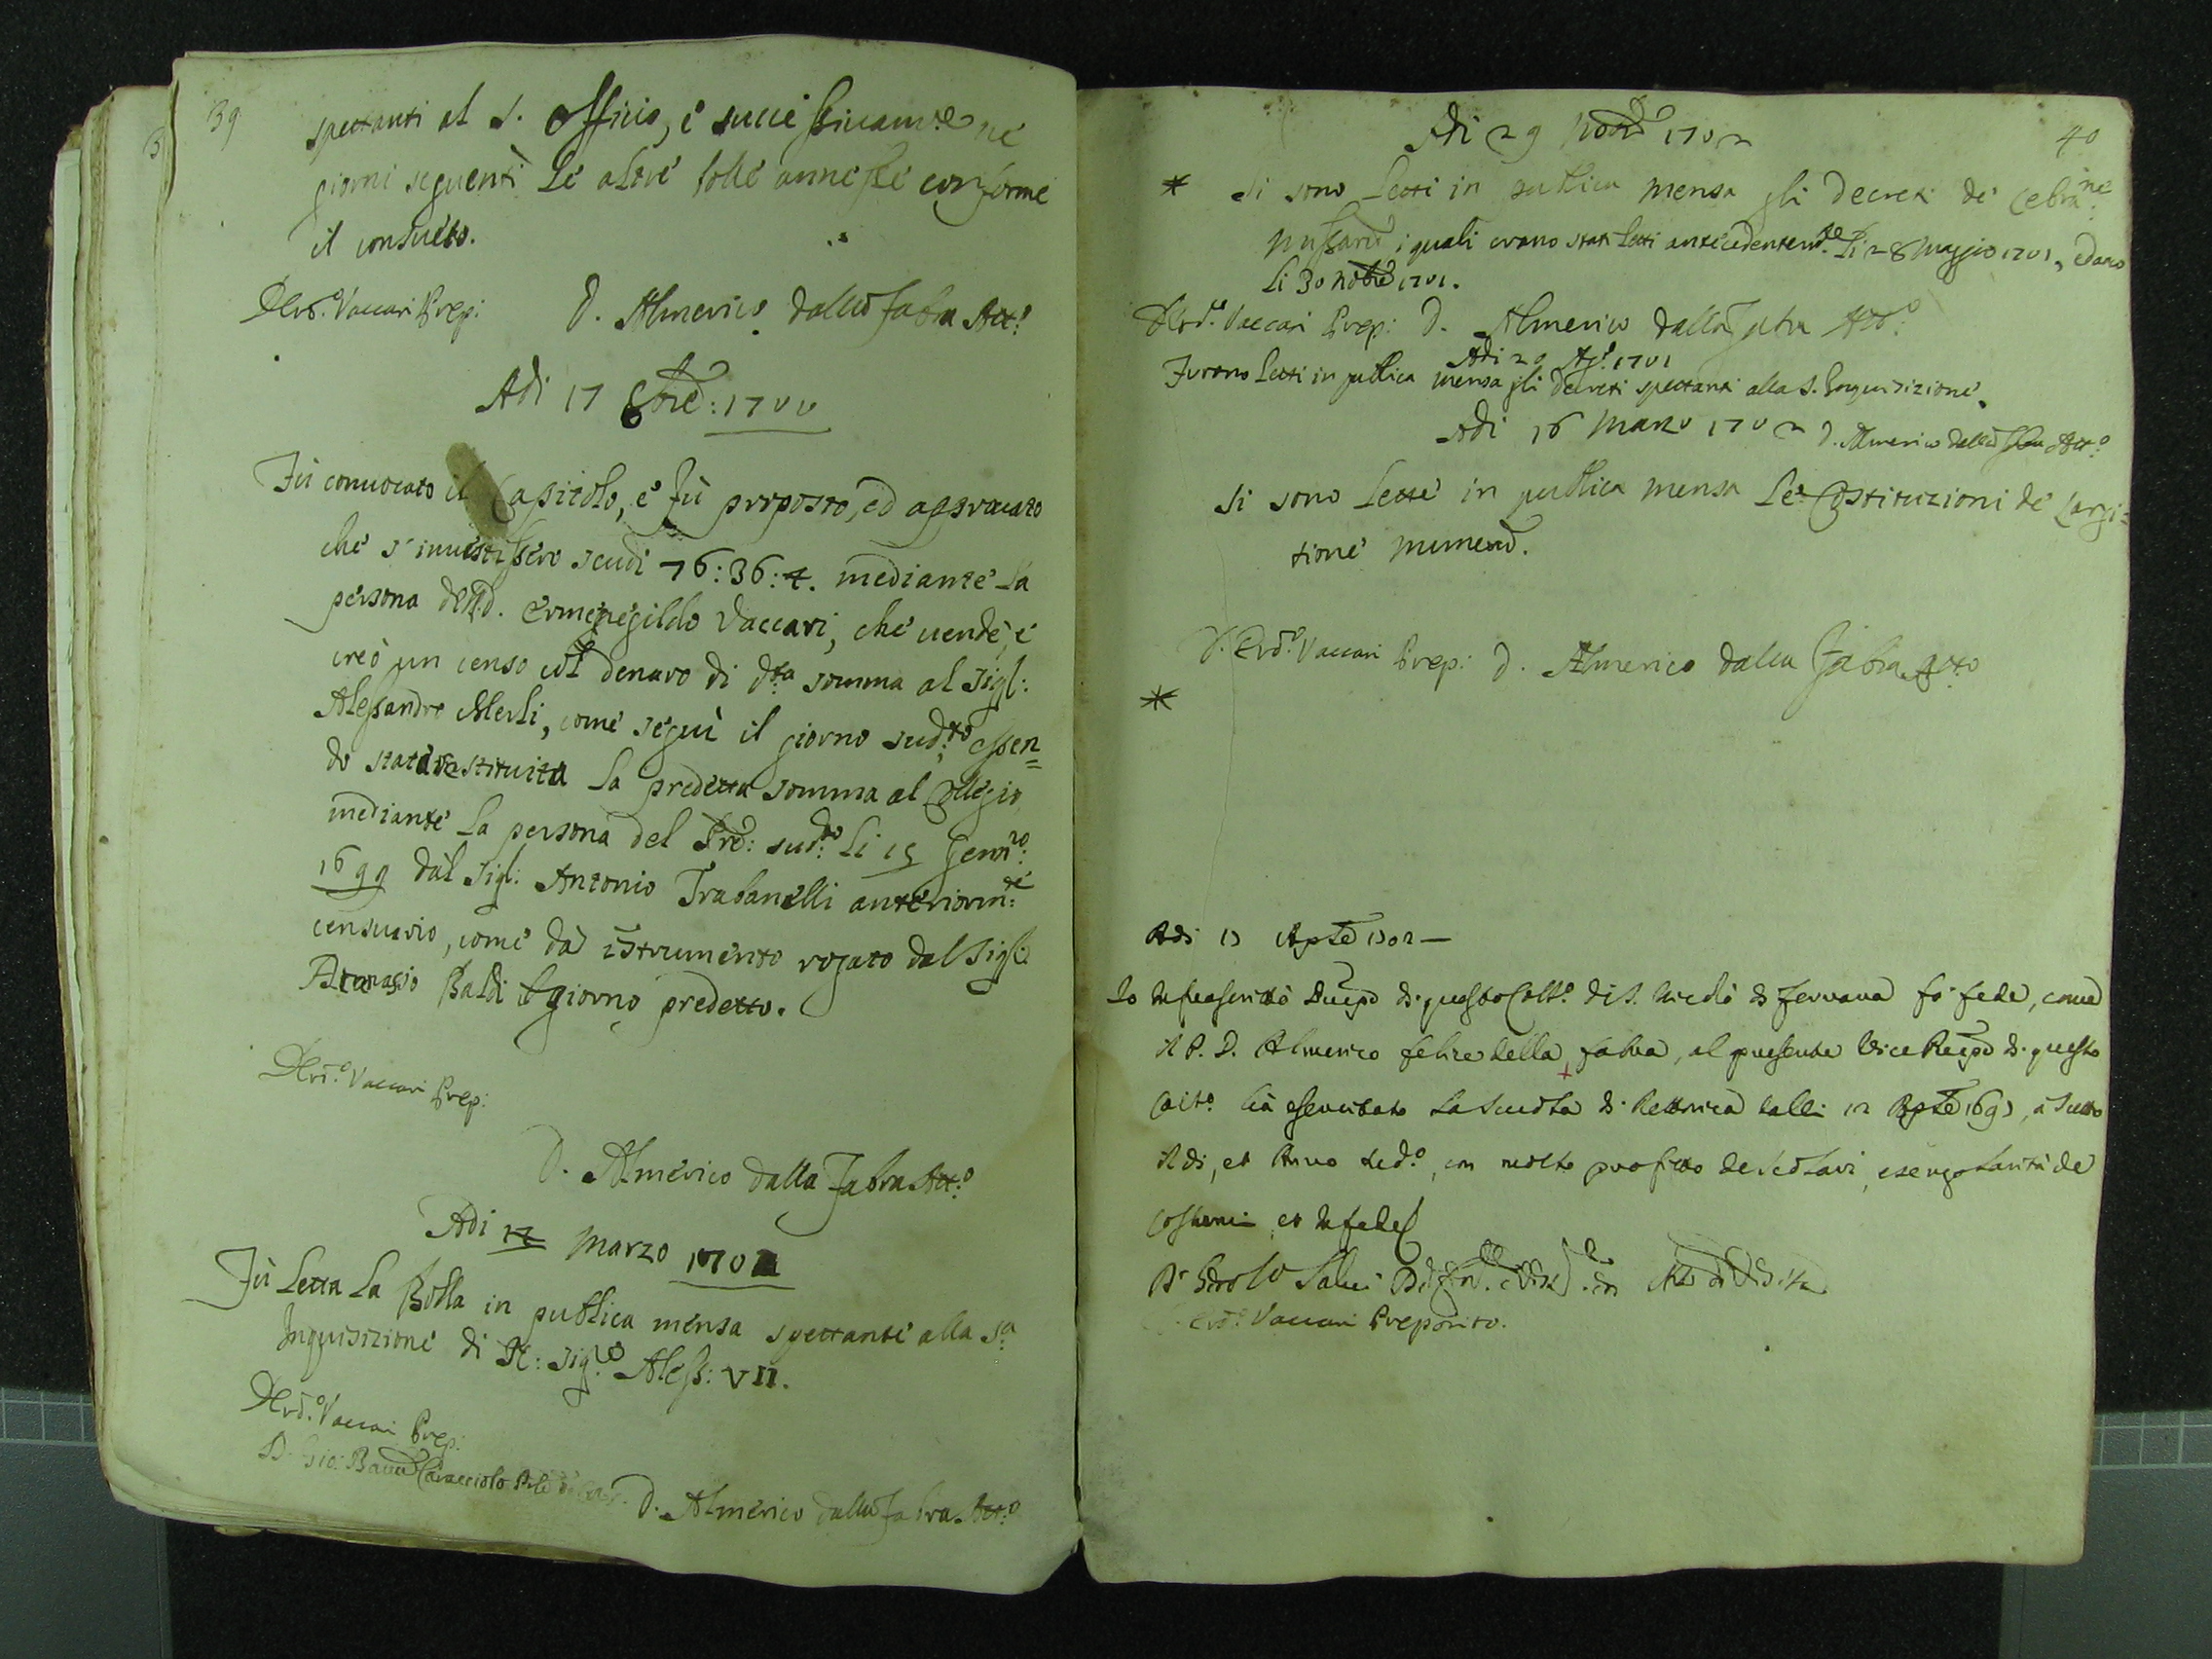 39
spettanti al S. Officio, e successivam.te ne
giorni seguenti le altre bolle annesse conforme
il consueto.
Vaccari Prep:
D. Almerico dalla Fabra Att.o
Adi 17 8bre: 1700
Fù convocato il Capitolo, e fù proposto, ed approvato
che s'investissero scudi 76:36:4. mediante la
persona del P.D. Ermenegildo Vaccari, che vendè, e
creò un censo col denaro di d.ta somma al Sig.:
Alessandro Merli, come seguì il giorno sud.to essen=
do stata restituita la predetta somma al Collegio
mediante la persona del Pre: sud.to li 15 Genn.ro:
1699 dal Sig.: Antonio Trabanelli anteriorm.te
censuario, come da istrumento rogato dal Sig.:
Baldi il giorno predetto.
Vaccari Prep:
D. Almerico dalla Fabra Att.o
Adi 17 Marzo 1701
Fù letta la Bolla in publica mensa spettante alla S.a
Inquisizione di Aless: VII.
Vaccari Prep:
D. Gio: Caracciolo
D. Almerico dalla Fabra Att.o
40
Adi 29 1702
* Si sono letti in publica mensa gli Decreti de Celebra.ne
Missarum i quali erano stati letti antecedentem.te li 28 Maggio 1701,
li 30 Nobre 1701.
Vaccari Prep: D. Almerico dalla Fabra Att.o
Adi 29 Ag.o 1701
Furono letti in publica mensa gli decreti spettanti alla S. Inquisizione.
Adi 16 Marzo 1702 D. Almerico dalla Fabra Att.o
Si sono lette in publica mensa le Costituzioni de Largi=
tione munerum.
Vaccari Prep: D. Almerico dalla Fabra Att.o
*
Adi
Io infrascritto di questo Coll.o di S. Nicolò di Ferrara fò fede, come
il P. D. Almerico Felice della Fabra, al presente Vice di questo
Coll.o hà esercitato la scuola di Rettorica dalli 12
di, et Anno sud.o, con molto profitto de scolari, de
costumi et in fede
Vaccari Preposito.